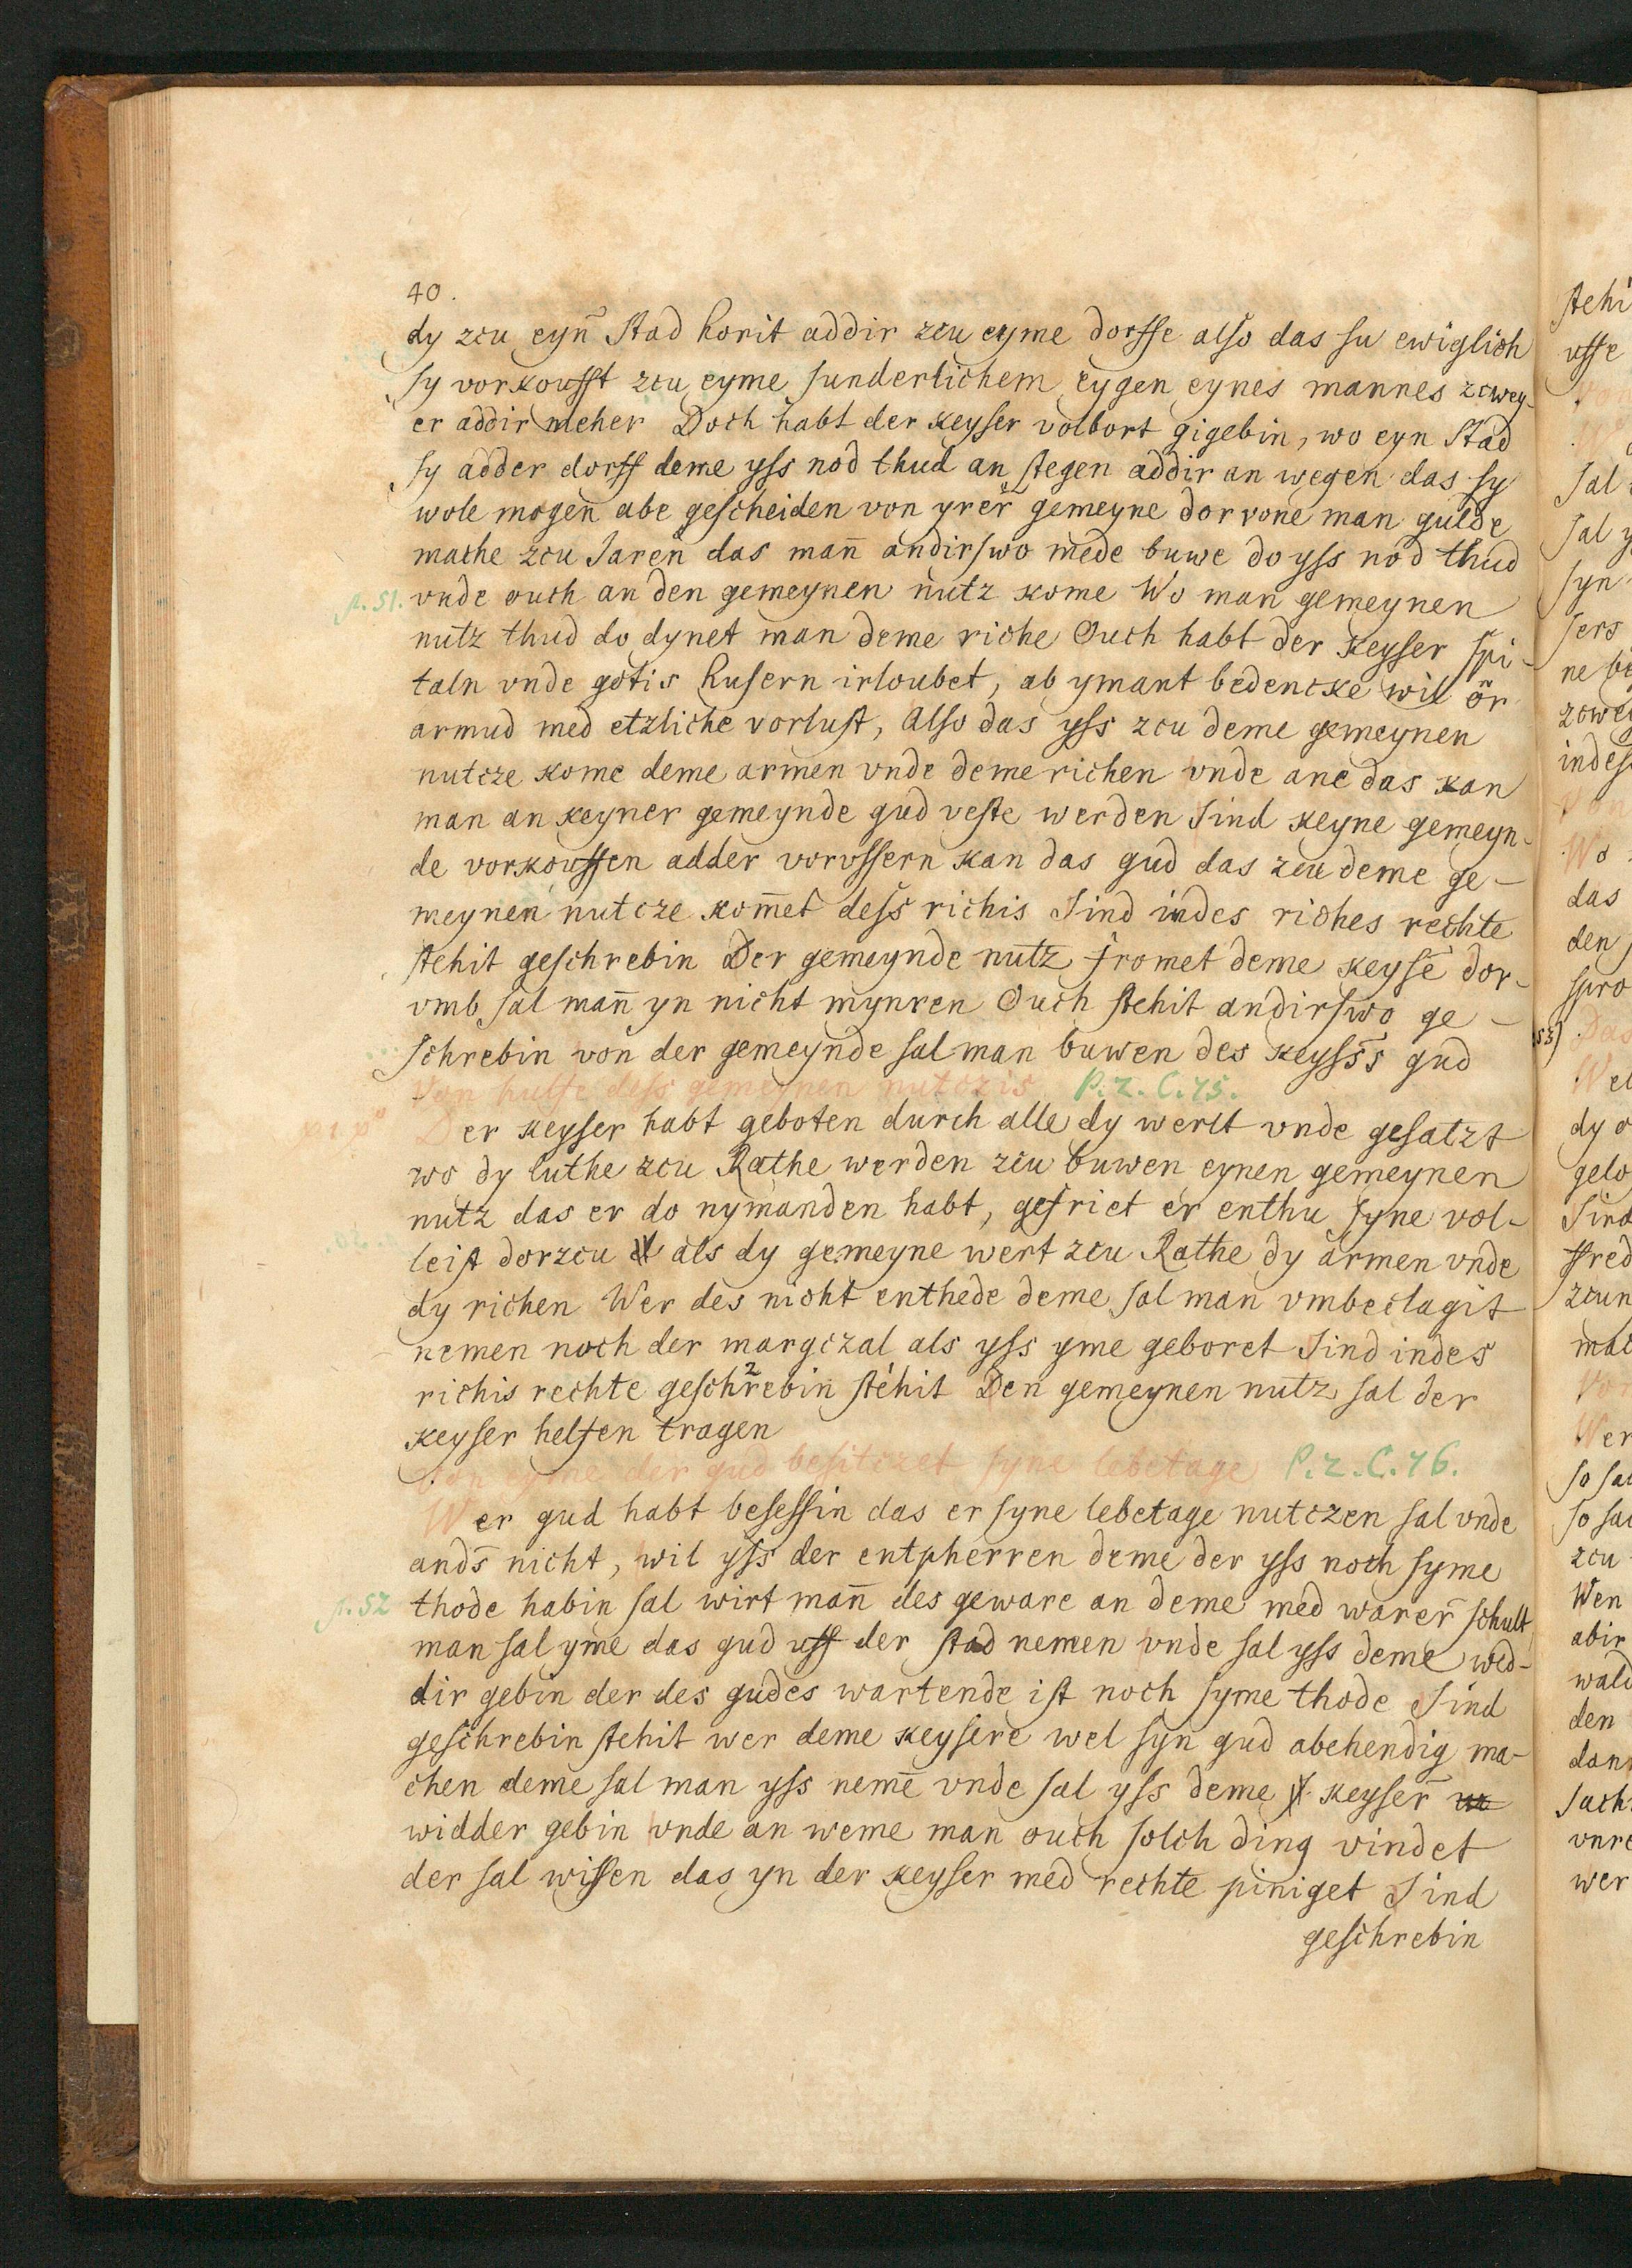 40.
dy zcu eyn̄ Stad horit addir zcu eyme dorffe also das su ewiglich
sy vorkoufft zcu eyme sunderlichem eygen eynes mannes zcwey-
er addir meher Doch habt der keyser volbort gigebin, wo eyn Stad
sy adder dorff deme yss nod thud an stegen addir an wegen das sy
wole mogen abe gescheiden von yrer̄ gemeyne dorvone man gulde
mache zcu Jaren das man̄ andirswo mede buwe do yss nod thud
p. 51. vnde ouch an den gemeynen nutz kome Wo man gemeynen
nutz thud do dynet man deme riche Ouch habt der keyser spi-
taln vnde gotis husern irloubet, ab ymant bedencke wil ōr
armud med etzliche vorlust, Also das yss zcu deme gemeynen
nutcze kome deme armen vnde deme richen vnde ane das kan
man an keyner gemeynde gud veste werden Sind keyne gemeyn-
de vorkouffen adder vorussern kan das gud das zcu deme ge-
meynen nutcze kom̄et dess richis Sind indes riches rechte
stehit geschrebin Der gemeynde nutz fromet deme keysē dor-
vmb sal man̄ yn nicht mynren Ouch stehit andirswo ge-
schrebin von der gemeynde sal man buwen des keyss̄s gud
Von hulfe dess gemeynen nutczis P. 2. C. 75.
Der keyser habt geboten durch alle dy werlt vnde gesatzt
wo dy luthe zcu Rathe werden zcu buwen eynen gemeynen
nutz das er do nymanden habt, gefriet er enthu syne vol-
leist dorzcu als dy gemeyne wert zcu Rathe dy armen vnde
dy richen Wer des nicht enthede deme sal man vmbeclagit
nemen noch der margczal als yss yme geboret Sind indes
richis rechte geschrebin stehit Den gemeynen nutz sal der
keyser helfen tragen
Von eyme der gud besitczet syne lebetage P. 2. C. 76.
Wer gud habt besessin das er syne lebetage nutczen sal vnde
and̄s nicht, wil yss der entpherren deme der yss noch syme
p. 52 thode habin sal wirt man̄ des geware an deme med warer̄ schult
man sal yme das gud uff der stad nemen vnde sal yss deme wed-
dir gebin der des gudes wartende ist noch syme thode Sind
geschrebin stehit wer deme keysere wel syn gud abehendig ma-
chen deme sal man yss nemē vnde sal yss deme keyser̄
widder gebin vnde an weme man ouch solch ding vindet
der sal wissen das yn der keyser med rechte piniget Sind
geschrebin